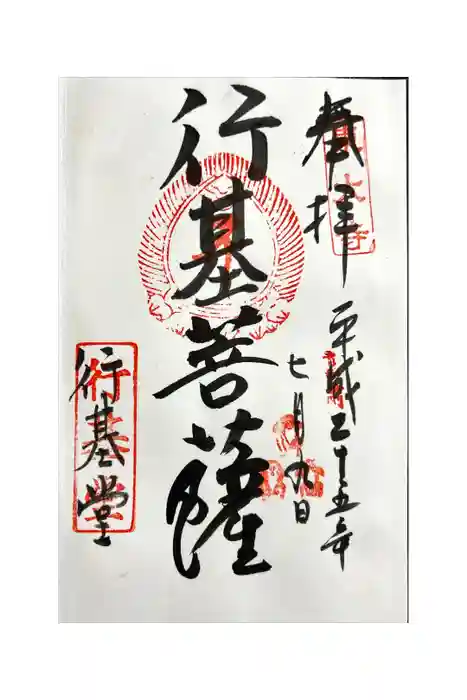 奉拝
平成二十五年
七月九日
行基菩薩
行基堂